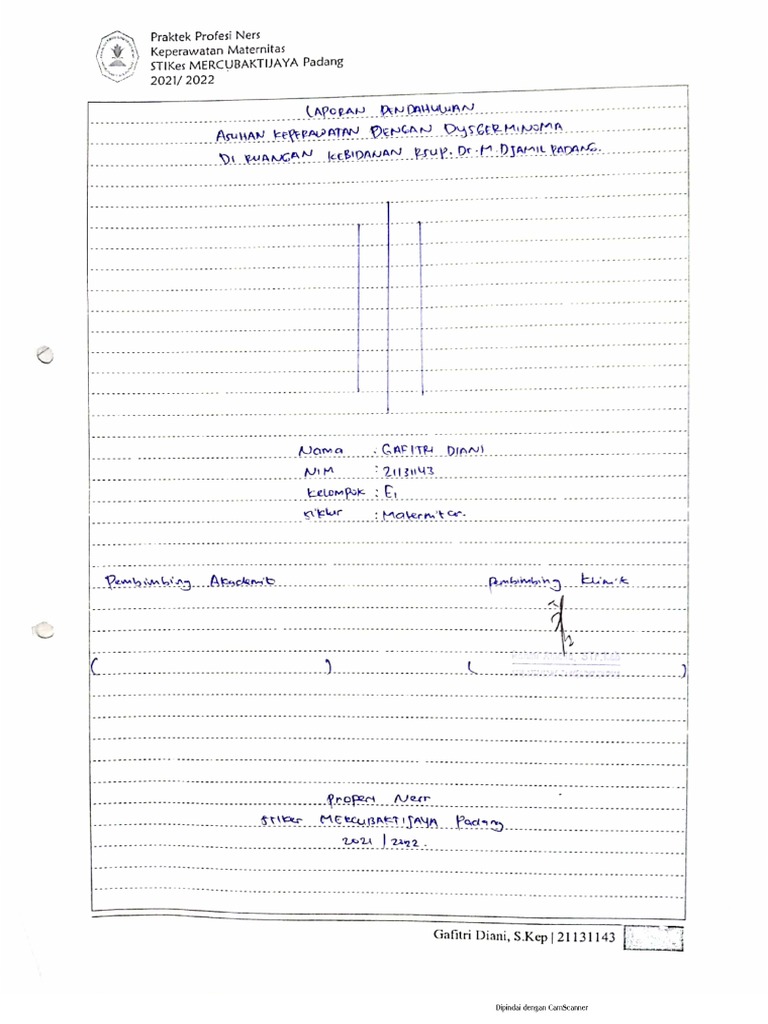 Praktek Profesi Ners
Keperawatan Maternitas
STIKes MERCUBAKTIJAYA Padang
2021/ 2022
LAPORAN PENDAHULUAN
ASUHAN KEPERAWATAN DENGAN DYSGERMINOMA
DI RUANGAN KEBIDANAN RSUP. Dr. M. DJAMIL PADANG.
Nama : GAFITRI DIANI
NIM : 21131143
Kelompok : E1
Siklus : Maternitas.
Pembimbing Akademik Pembimbing Klinik
( ) ( )
Profesi Ners
STIKes MERCUBAKTIJAYA Padang
2021 / 2022.
Gafitri Diani, S.Kep | 21131143
Dipindai dengan CamScanner